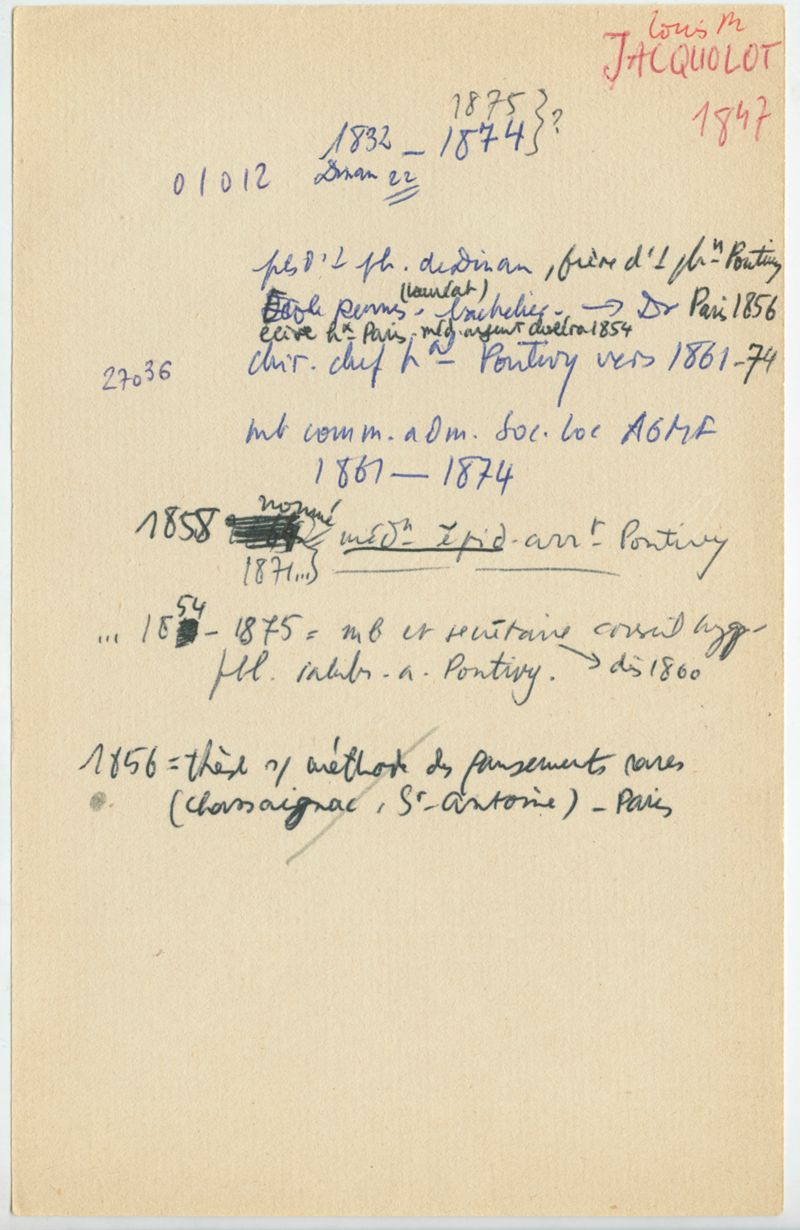 Louis M
JACQUOLOT
1847
1875 } ?
1832 — 1874
01012 Dinan 22
fils d'1 ph. de Dinan, frère d'1 phn Pontivy
École Rennes - (lauréat) bachelier - → Dr Paris 1856
élève hx Paris - méd. argent choléra 1854
27036 chir. chef hal Pontivy vers 1861-74
mb comm. adm. Soc. loc AGMF
1861 — 1874
1858 nommé médn épid. arrt Pontivy
1871...}
... 1854 - 1875 = mb et secrétaire conseil hyg-
pbl. salubr. a. Pontivy. → dès 1860
1856 = thèse s/ méthode des pansements rares
(Chassaignac, St-Antoine) - Paris